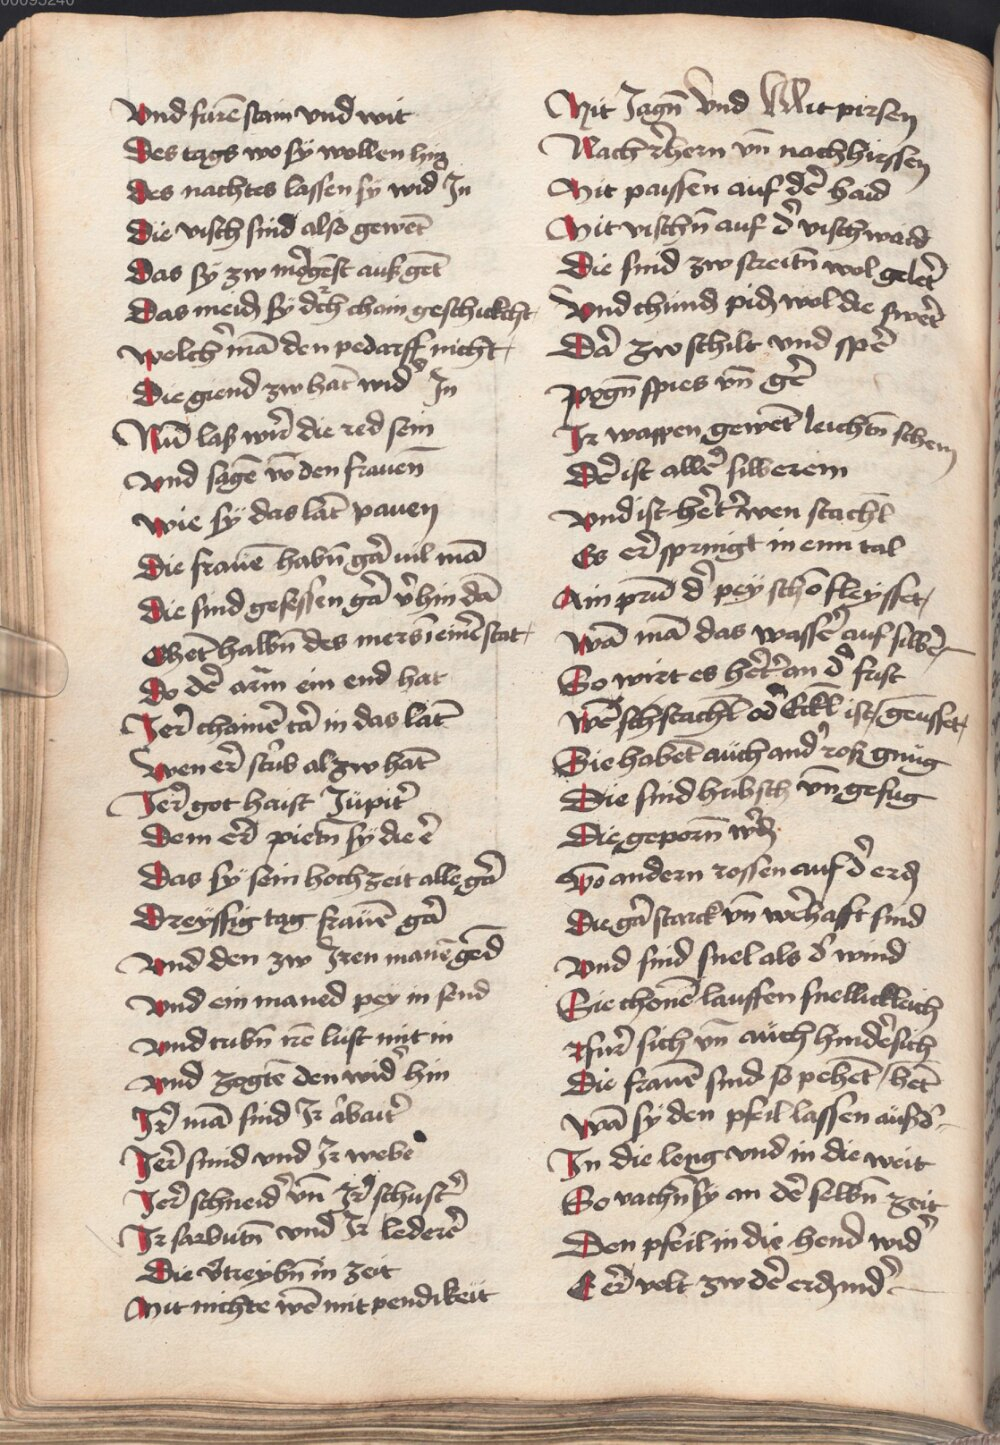 00095240
Vnd furē stain vnd wit
Des tags wo sy wollen hin
Des nachtes lassen sy wid̉ In
Die visch sind also gewēt
Das sy zw mȯgēst auß gēt
Das meid sy dch chain geschickcht
Welch̉ mā den pedarff nicht
Die giend zw hāt wid̉ In
Nū laß wir̉ die red sein
Vnd sagē vō den frauen̄
Wie sy das lāt pauen
Die frauē habn̄ gar̉ uil mā
Die sind gesessen gar̉ v̉hin dā
Ehēt halbn̄ des mers in einē stat
Do der̉ arm̄ ein end hat
Jer̉ chainē tar̉ in das lāt
Wen er̉ sturb al zw hāt
Jer̉ got haist Jupiter̉
Dem er̉ pietn̄ sy die ē
Das sy sein hochzeit alle gar̉
Dreyssig tag frauē gar̉
Vnd den zw Iren manē gend̄
Vnd ein maned pey in send
Vnd tribn̄ irē lust mit in
Vnd zogtē den wid̉ hin
Ir̉ mā sind Ir ar̉bait̉
Jer̉ smid vnd Ir weber̉
Jer̉ schneid̉ vn̄ Ir̉ schust̉
Ir sarbutn̄ vnd Ir lederer̉
Die v̉treybn̄ in zeit
Mit nichte wē mit pendikeit
Mit Jagn̄ vnd Mit pirsen
Nach rehern vn̄ nach hirssen
Mit paissen auf der̉ haid
Mit vischn̄ auf d̉ vischwaid
Die sind zw streitn̄ wol geler̉t
Vnd chund pid wol die swer̉t
Dar̉ zw schilt vnd sper̉
Pogn̄ spies vn̄ ger̉
Ir wappen gewēt leichtn̄ schein
Der̉ ist aller̉ silberein
Vnd ist her̉t̉ wen stachl̄
Es er̉springt in enn tal
Ain prun̄ d̉ pey schō fleysset
Wā mā das wasser̉ auf silber̉
So wirt es her̉t̉ an d̉ frist
Wē schstachl̄ od̉ Eckl̄ ist geusset
Sie habēt auch and̉ roß gnug
Die sind hubsch vn̄ gefug
Die geporn̄ wer̉d
Vō andern rossen auf d̉ erd
Die gar̉ starck vn̄ wer̉hafft sind
Vnd sind snel als d̉ wind
Sie chonē lauffen snellickleich
Fur̉ sich vn̄ auch hinder̉ sich
Die frauē sind so pehēt hēt
Wā sy den pfeil lassen aus d̉
In die leng vnd in die weit
So vachn̄ sy an der̉ selbn̄ zeit
Den pfeil in die hend wid̉
E er̉ velt zw der̉ erd nid̉